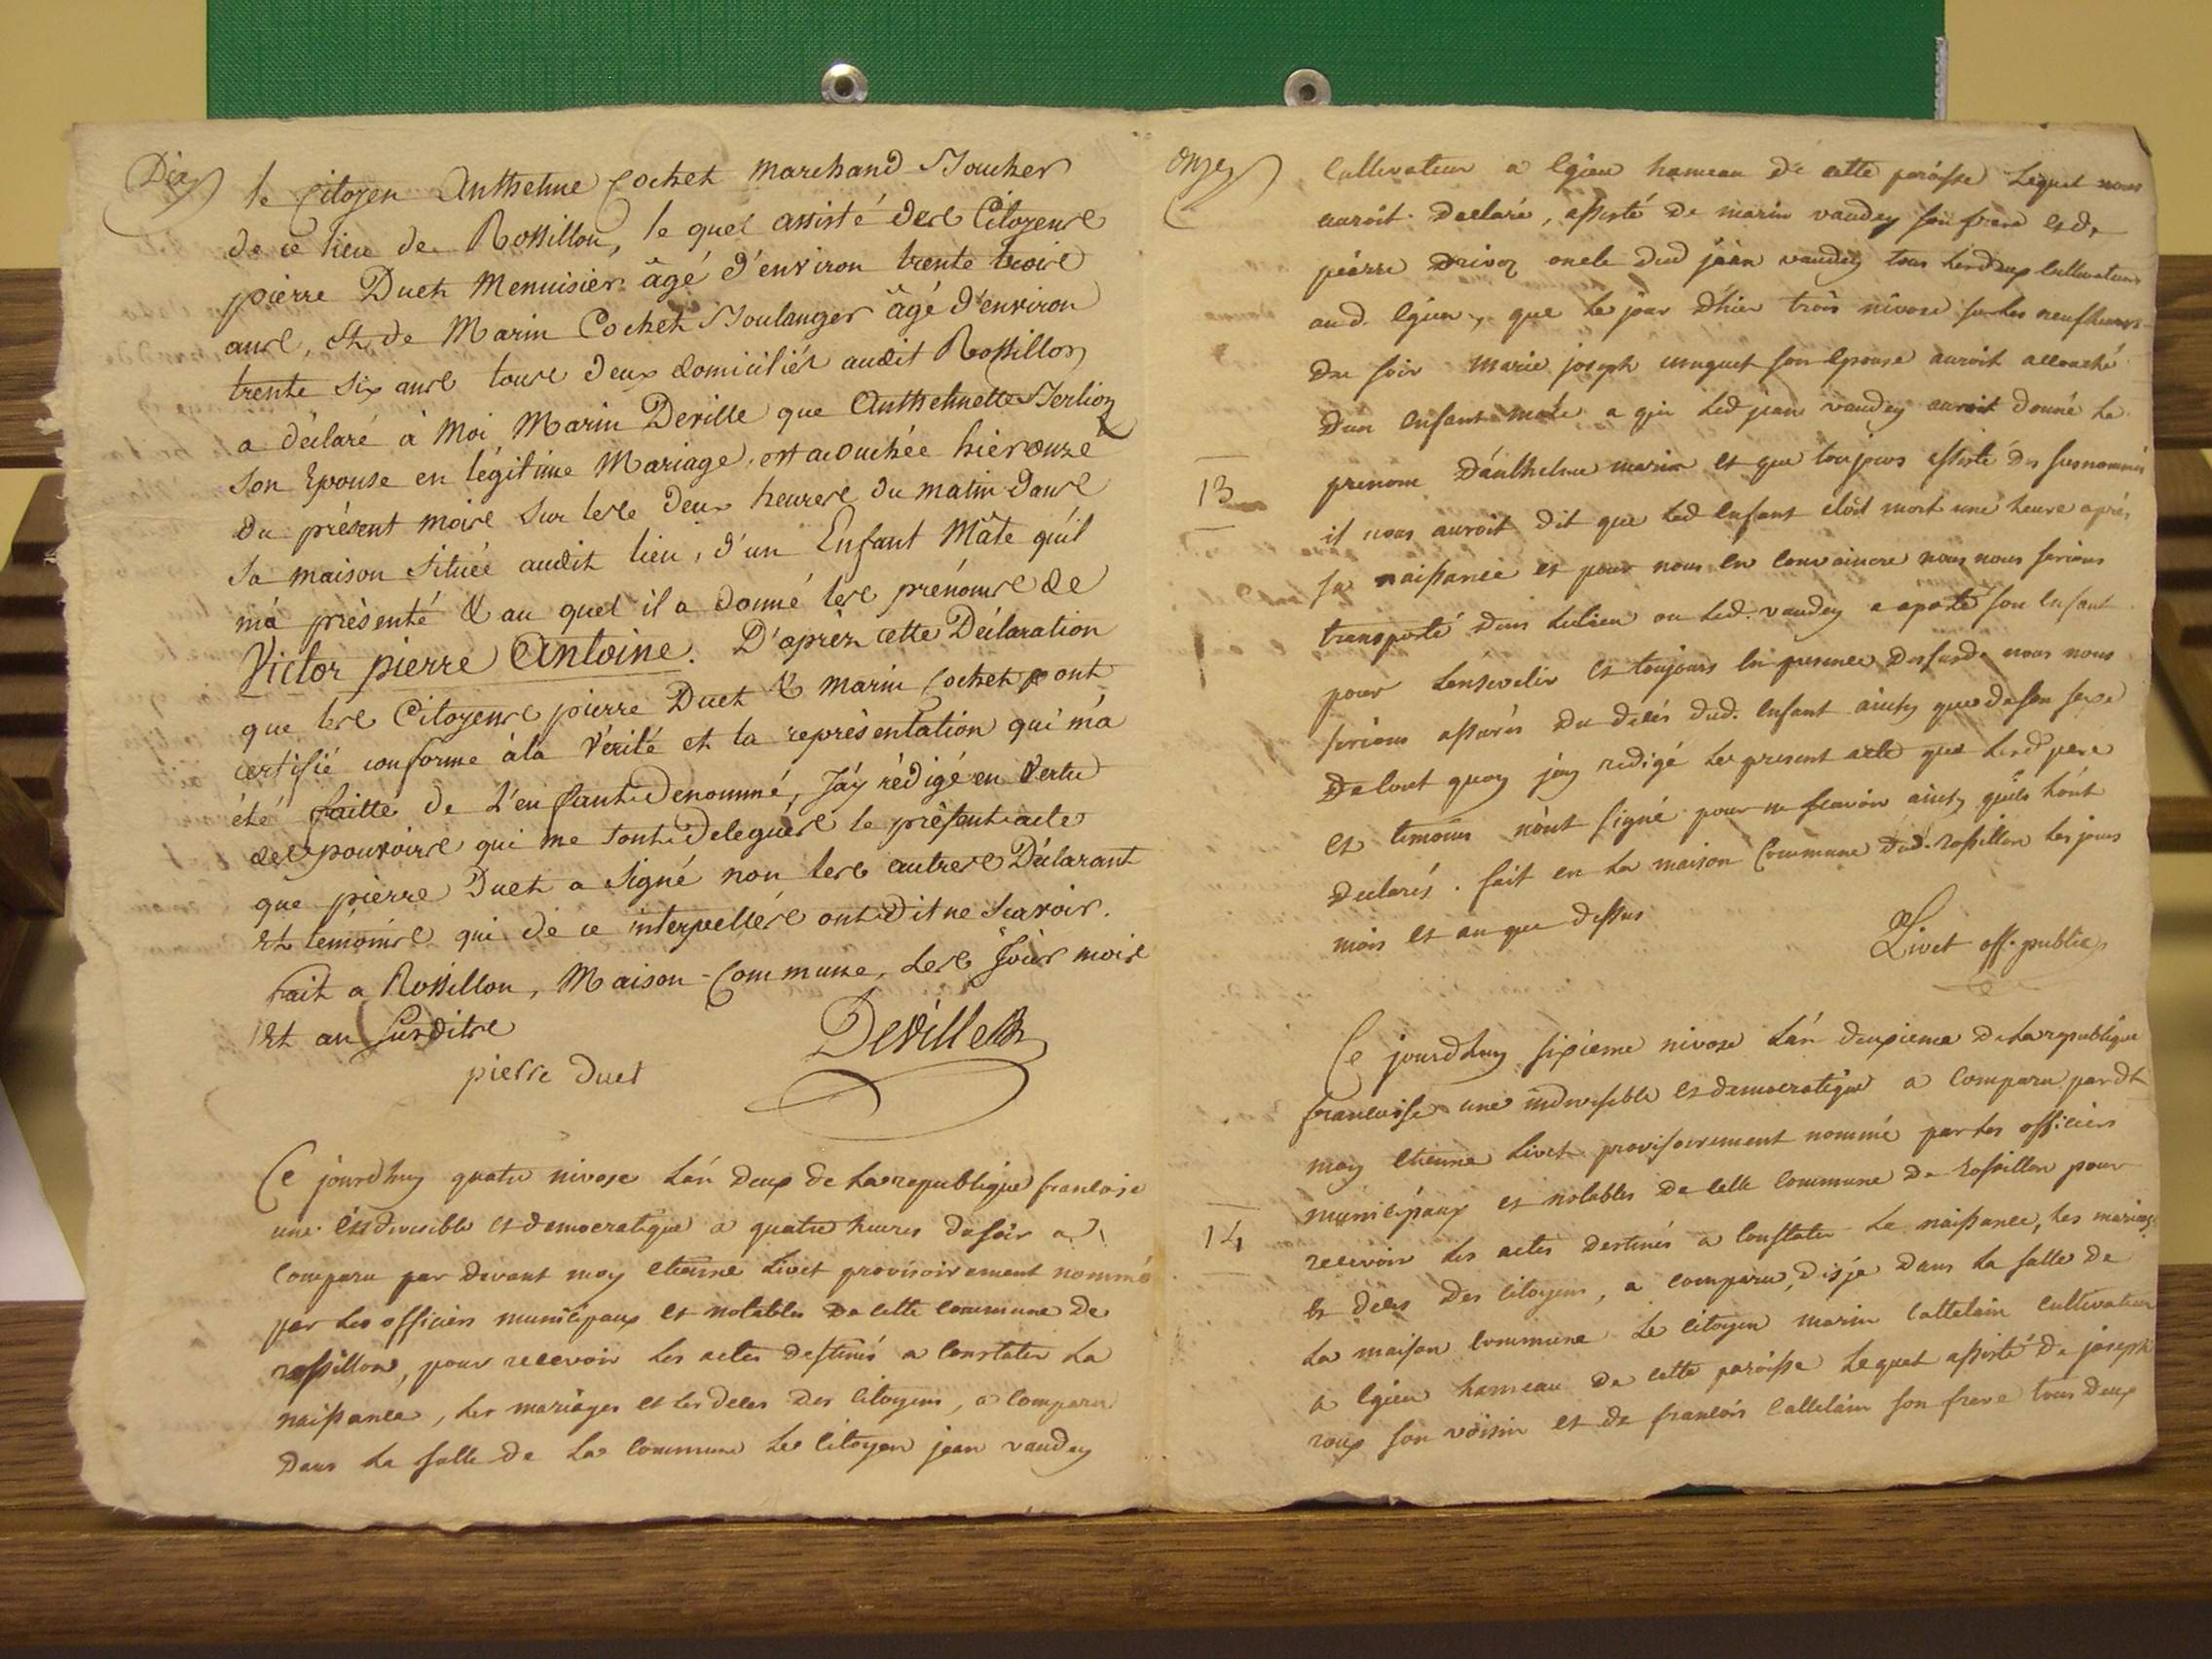 Dix
le Citoyen Anthelme Cochet Marchand Boucher
de ce lieu de Rossillon, le quel assisté des Citoyens
pierre Duet Menuisier âgé d'environ trente trois
ans, et de Marin Cochet Boulanger âgé d'environ
trente six ans tous deux domiciliés audit Rossillon
a déclaré à Moi Marin Deville que Anthelmette
son Epouse en légitime Mariage, est acouchée hier onze
du présent mois sur les deux heures du matin dans
sa maison située audit lieu, d'un Enfant Mâle qu'il
m'a présenté & au quel il a donné les prénoms de
Victor pierre Antoine. D'après cette Déclaration
que les Citoyens pierre Duet & marin Cochet ont
certifié conforme à la Vérité et la représentation qui m'a
été faitte de L'enfant denommé, J'ay rédigé en Vertu
des pouvoirs qui me sont delegués le présent acte
que pierre Duet a signé non les autres Déclarant
et temoins qui de ce interpellés ont dit ne scavoir.
fait a Rossillon, Maison-Commune, les Jour mois
et an susdits
pierre duet
Deville
Ce jourdhuy quatre nivose L'an deux de La republique francoise
une indivisible et democratique a quatre heures du soir a
comparu par devant moy etienne Livet provisoirement nommé
par Les officiers municipaux et notables de cette commune de
rossillon, pour recevoir Les actes destinés a constater La
naissance, Les mariages et Les deces des citoyens, a comparu
dans La salle de La commune Le citoyen jean vaudey
onze
cultivateur a Egieu hameau de cette paroisse Lequel nous
auroit declaré, assisté de marin vaudey son frere et de
pierre drivoz oncle dud jean vaudey tous cultivateurs
aud. Egieu, que Le jour d'hier trois nivose sur Les neuf heures
du soir marie joseph muguet son epouse auroit accouché
d'un enfant male a qui Led jean vaudey auroit donné Le
prenom d'anthelme marin et que toujours assisté des susnommés
13
il nous auroit dit que Led enfant etoit mort une heure après
sa naissance et pour nous en convaincre nous nous serions
transporté dans Le lieu ou Led. vaudey a aporté son enfant
pour L'ensevelir et toujours en presence des susd. nous nous
serions assurés du decés dud. enfant ainsy que de son sexe
De tout quoy j'ay redigé Le present acte que Led pere
et temoins n'ont signé pour ne scavoir ainsy qu'ils L'ont
declarés. fait en La maison commune dud. rossillon Les jour
mois et an que dessus
Livet off. public
Ce jourdhuy sixieme nivose L'an deuxieme de La republique
francoise une indivisible et democratique a comparu par dt
moy etienne Livet provisoirement nommé par Les officiers
municipaux et notables de cette commune de Rossillon pour
14
recevoir Les actes destinés a constater La naissance, Les mariages
et deces des citoyens, a comparu, dis je dans La salle de
La maison commune Le citoyen marin cattelain cultivateur
a Egieu hameau de cette paroisse Lequel assisté de joseph
roux son voisin et de francois cattelain son frere tous deux